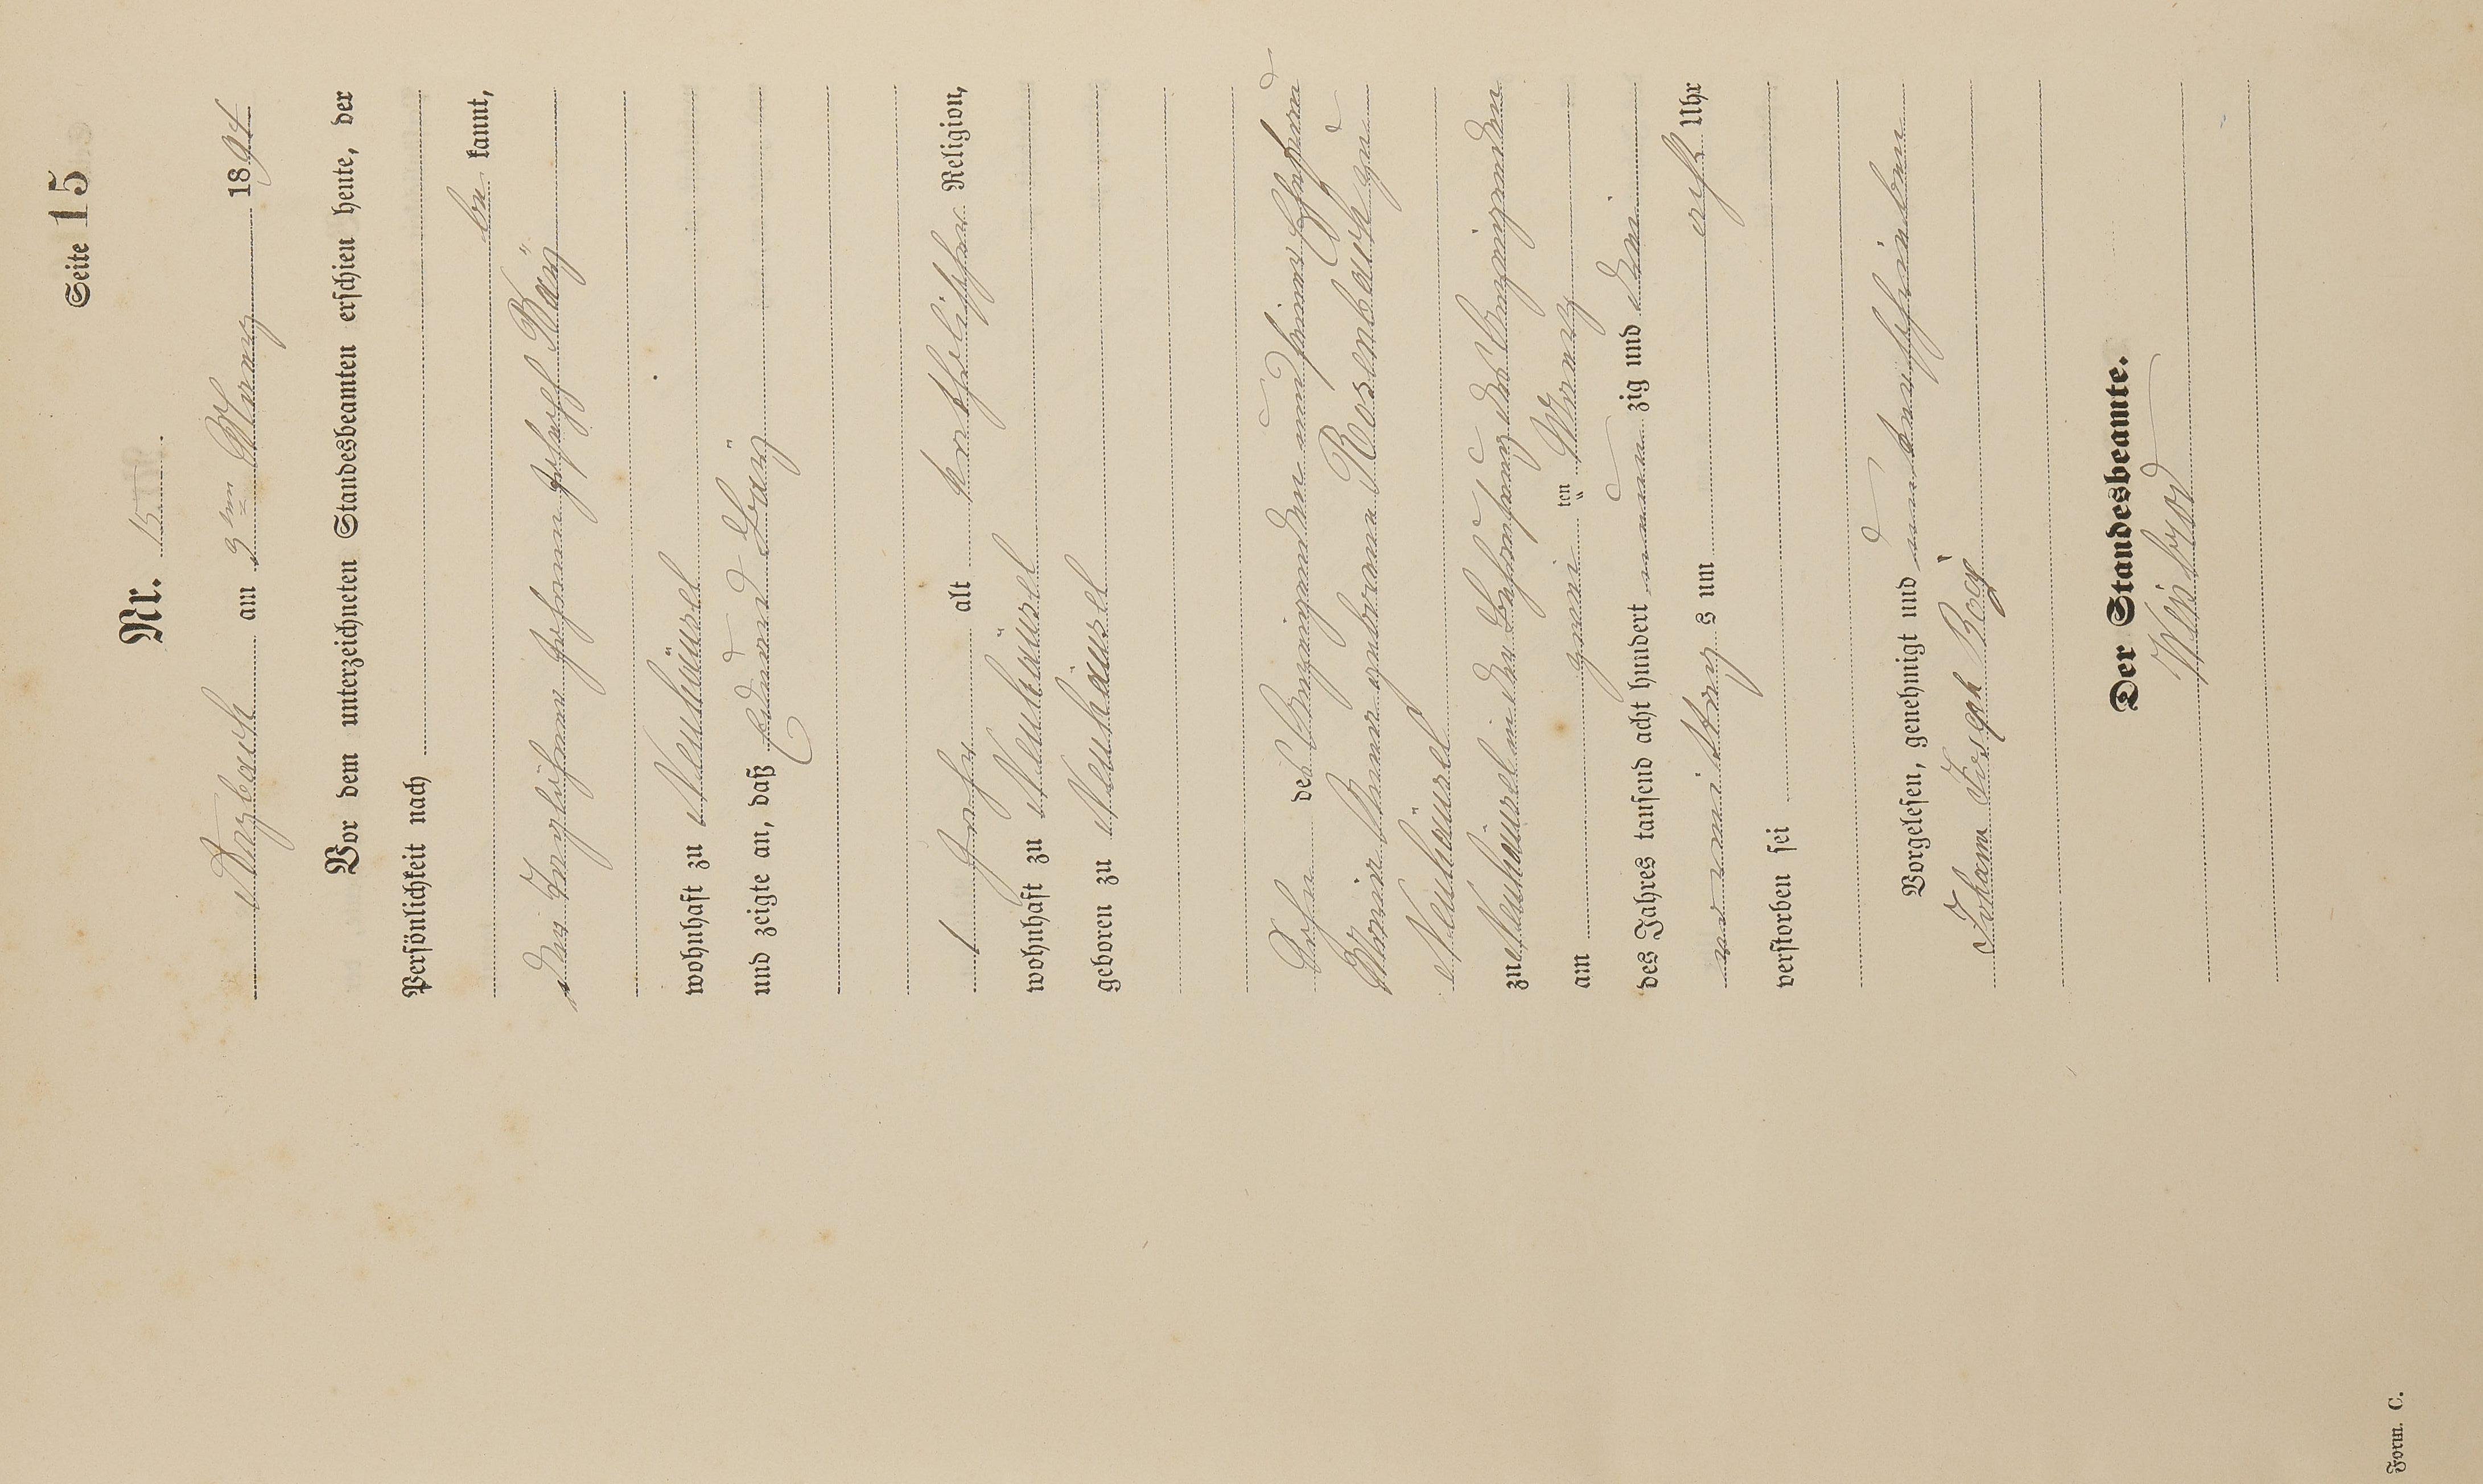 Seite 15
Nr. 15.
Arzbach am 3ten März 1894
Vor dem unterzeichneten Standesbeamten erschien heute, der
Persönlichkeit nach
be kannt,
der Taglöhner Johann Joseph
wohnhaft zu Neuhäusel
und zeigte an, daß Eduard
1 Jahr alt katholischer Religion,
wohnhaft zu Neuhäusel
geboren zu Neuhäusel
Sohn des Anzeigenden und seiner Ehefrau
Maria Anna geborene Rosenbauch zu
Neuhäusel
zu Neuhäusel in der Behausung des Anzeigenden
am zwei ten März
des Jahres tausend acht hundert neun zig und
vormittags um acht Uhr
verstorben sei
Vorgelesen, genehmigt und unterschrieben
Johann Joseph
Der Standesbeamte.
Form. C.